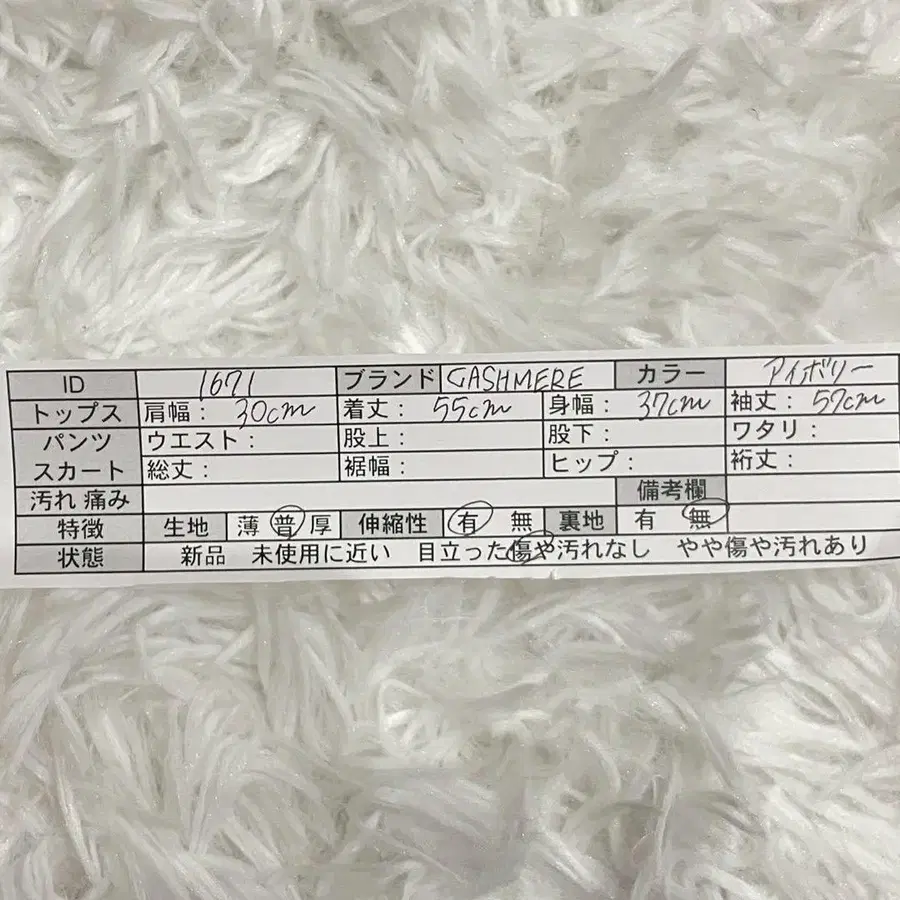 ID 1671 ブランド CASHMERE カラー アイボリー
トップス 肩幅： 30cm 着丈： 55cm 身幅： 37cm 袖丈： 57cm
パンツ ウエスト： 股上： 股下： ワタリ：
スカート 総丈： 裾幅： ヒップ： 裄丈：
汚れ 痛み 備考欄
特徴 生地 薄 普 厚 伸縮性 有 無 裏地 有 無
状態 新品 未使用に近い 目立った傷や汚れなし やや傷や汚れあり